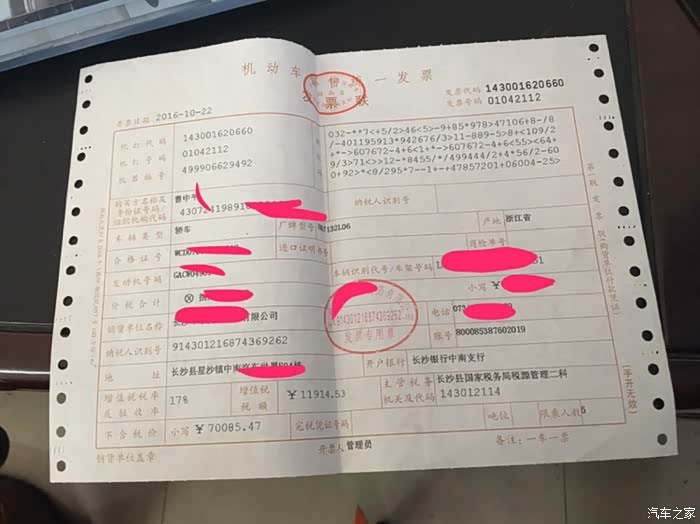 机动车销售统一发票
发票联
发票代码 143001620660
发票号码 01042112
开票日期 2016-10-22
机打代码 143001620660
机打号码 01042112
机器编号 499906629492
032-**7<+5/2>46<5>-9+85*978>47106+8-/8
/-401195913*942676/3>11-889-5>8+<109/2
+*->607672-4+6<1+*->607672-4+6<55><64+
9/3>71<>>12-*8455/*/499444/2+4*56/2-60
0+92>*<0/295*7--1+-+47857201+06004-25>
购买方名称及
身份证号码/
组织机构代码
曹中
纳税人识别号
车辆类型 轿车
厂牌型号
产地 浙江省
合格证号
进口证明书号
商检单号
发动机号码
车辆识别代号/车架号码
价税合计
小写 ¥
销货单位名称 长沙 有限公司
电话
纳税人识别号 914301216874369262
914301216874369262
发票专用章
账号 800085387602019
地址 长沙县星沙镇中南汽车世界
开户银行 长沙银行中南支行
增值税税率
及征收率
17%
增值税
税额
¥11914.53
主管税务
机关及代码
长沙县国家税务局税源管理二科
143012114
不含税价 小写 ¥70085.47
完税凭证号码
吨位
限乘人数 5
销货单位盖章
开票人 管理员
备注:一车一票
第一联 发票联(购货单位付款凭证)
(手开无效)
汽车之家